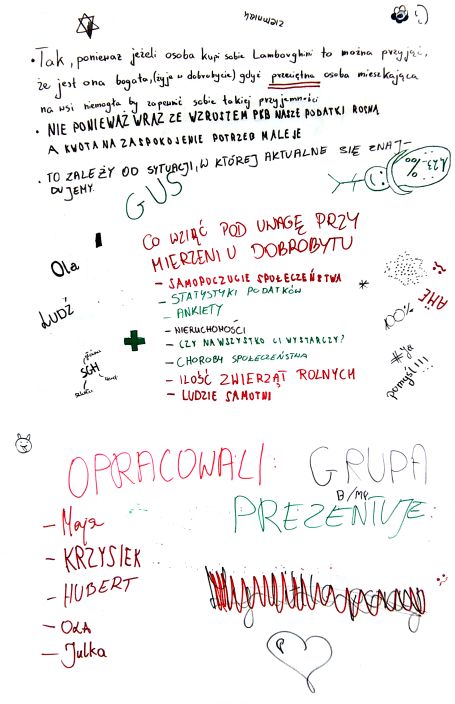 ziemniaki
• Tak, ponieważ jeżeli osoba kupi sobie Lamborghini to można przyjąć,
że jest ona bogata, (żyje w dobrobycie) gdyż przeciętna osoba mieszkająca
na wsi niemogła by zapewnić sobie takiej przyjemności
• NIE PONIEWAŻ WRAZ ZE WZROSTEM PKB NASZE PODATKI ROSNĄ
A KWOTA NA ZASPOKOJENIE POTRZEB MALEJE
• TO ZALEŻY OD SYTUACJI, W KTÓREJ AKTUALNE SIĘ ZNAJ-
DUJEMY.
GUS
CO WZIĄĆ POD UWAGĘ PRZY
MIERZENIU DOBROBYTU
Ola
ŁUDŹ
SGH
– SAMOPOCZUCIE SPOŁECZEŃSTWA
– STATYSTYKI PODATKÓW
– ANKIETY
– NIERUCHOMOŚCI
– CZY NA WSZYSTKO CI WYSTARCZY?
– CHOROBY SPOŁECZEŃSTWA
– ILOŚĆ ZWIERZĄT ROLNYCH
– LUDZIE SAMOTNI
100%
pomyśl!!!
OPRACOWALI: GRUPA
PREZENTUJE:
– Maja
– KRZYSIEK
– HUBERT
– OLA
– Julka